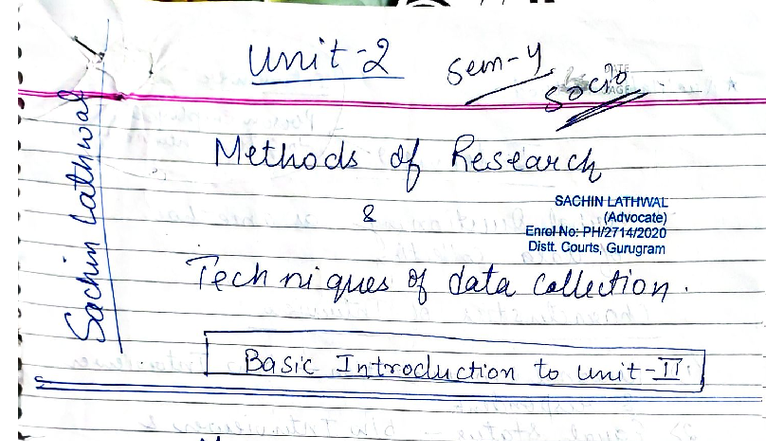 Unit-2
Sem-4
Socio
Sachin Lathwal
Methods of Research
&
SACHIN LATHWAL
(Advocate)
Enrol No: PH/2714/2020
Distt. Courts, Gurugram
Techniques of data collection.
Basic Introduction to Unit-II